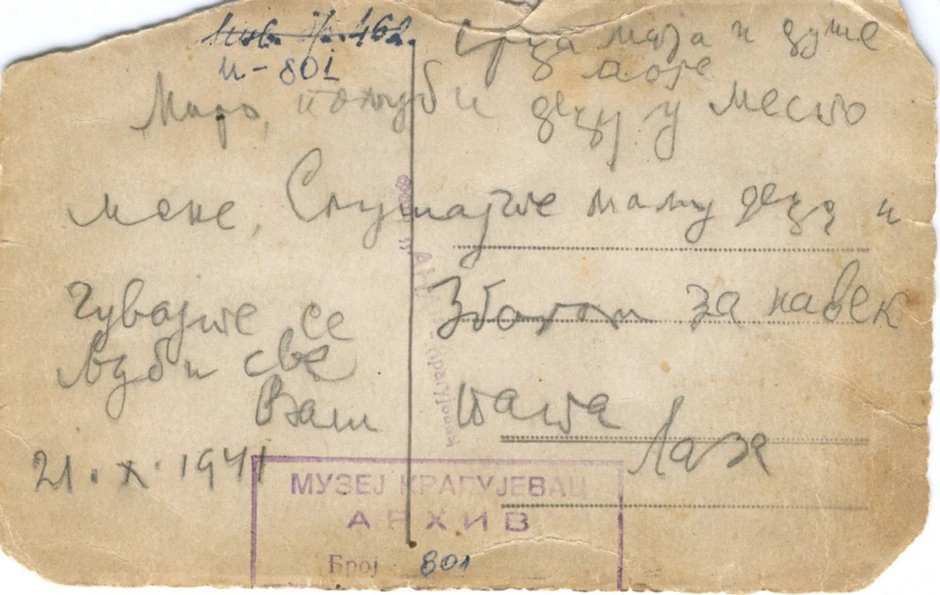 Инв. бр. 462.
И-801
Срца моја и душе
моје
Маро, пољуби децу у место
мене, Слушајте маму децо и
Чувајте се Збогом за навек
Љуби све
Ваш тата
Лаза
21. X. 1941
МУЗЕЈ КРАГУЈЕВАЦ
АРХИВ
Број 801